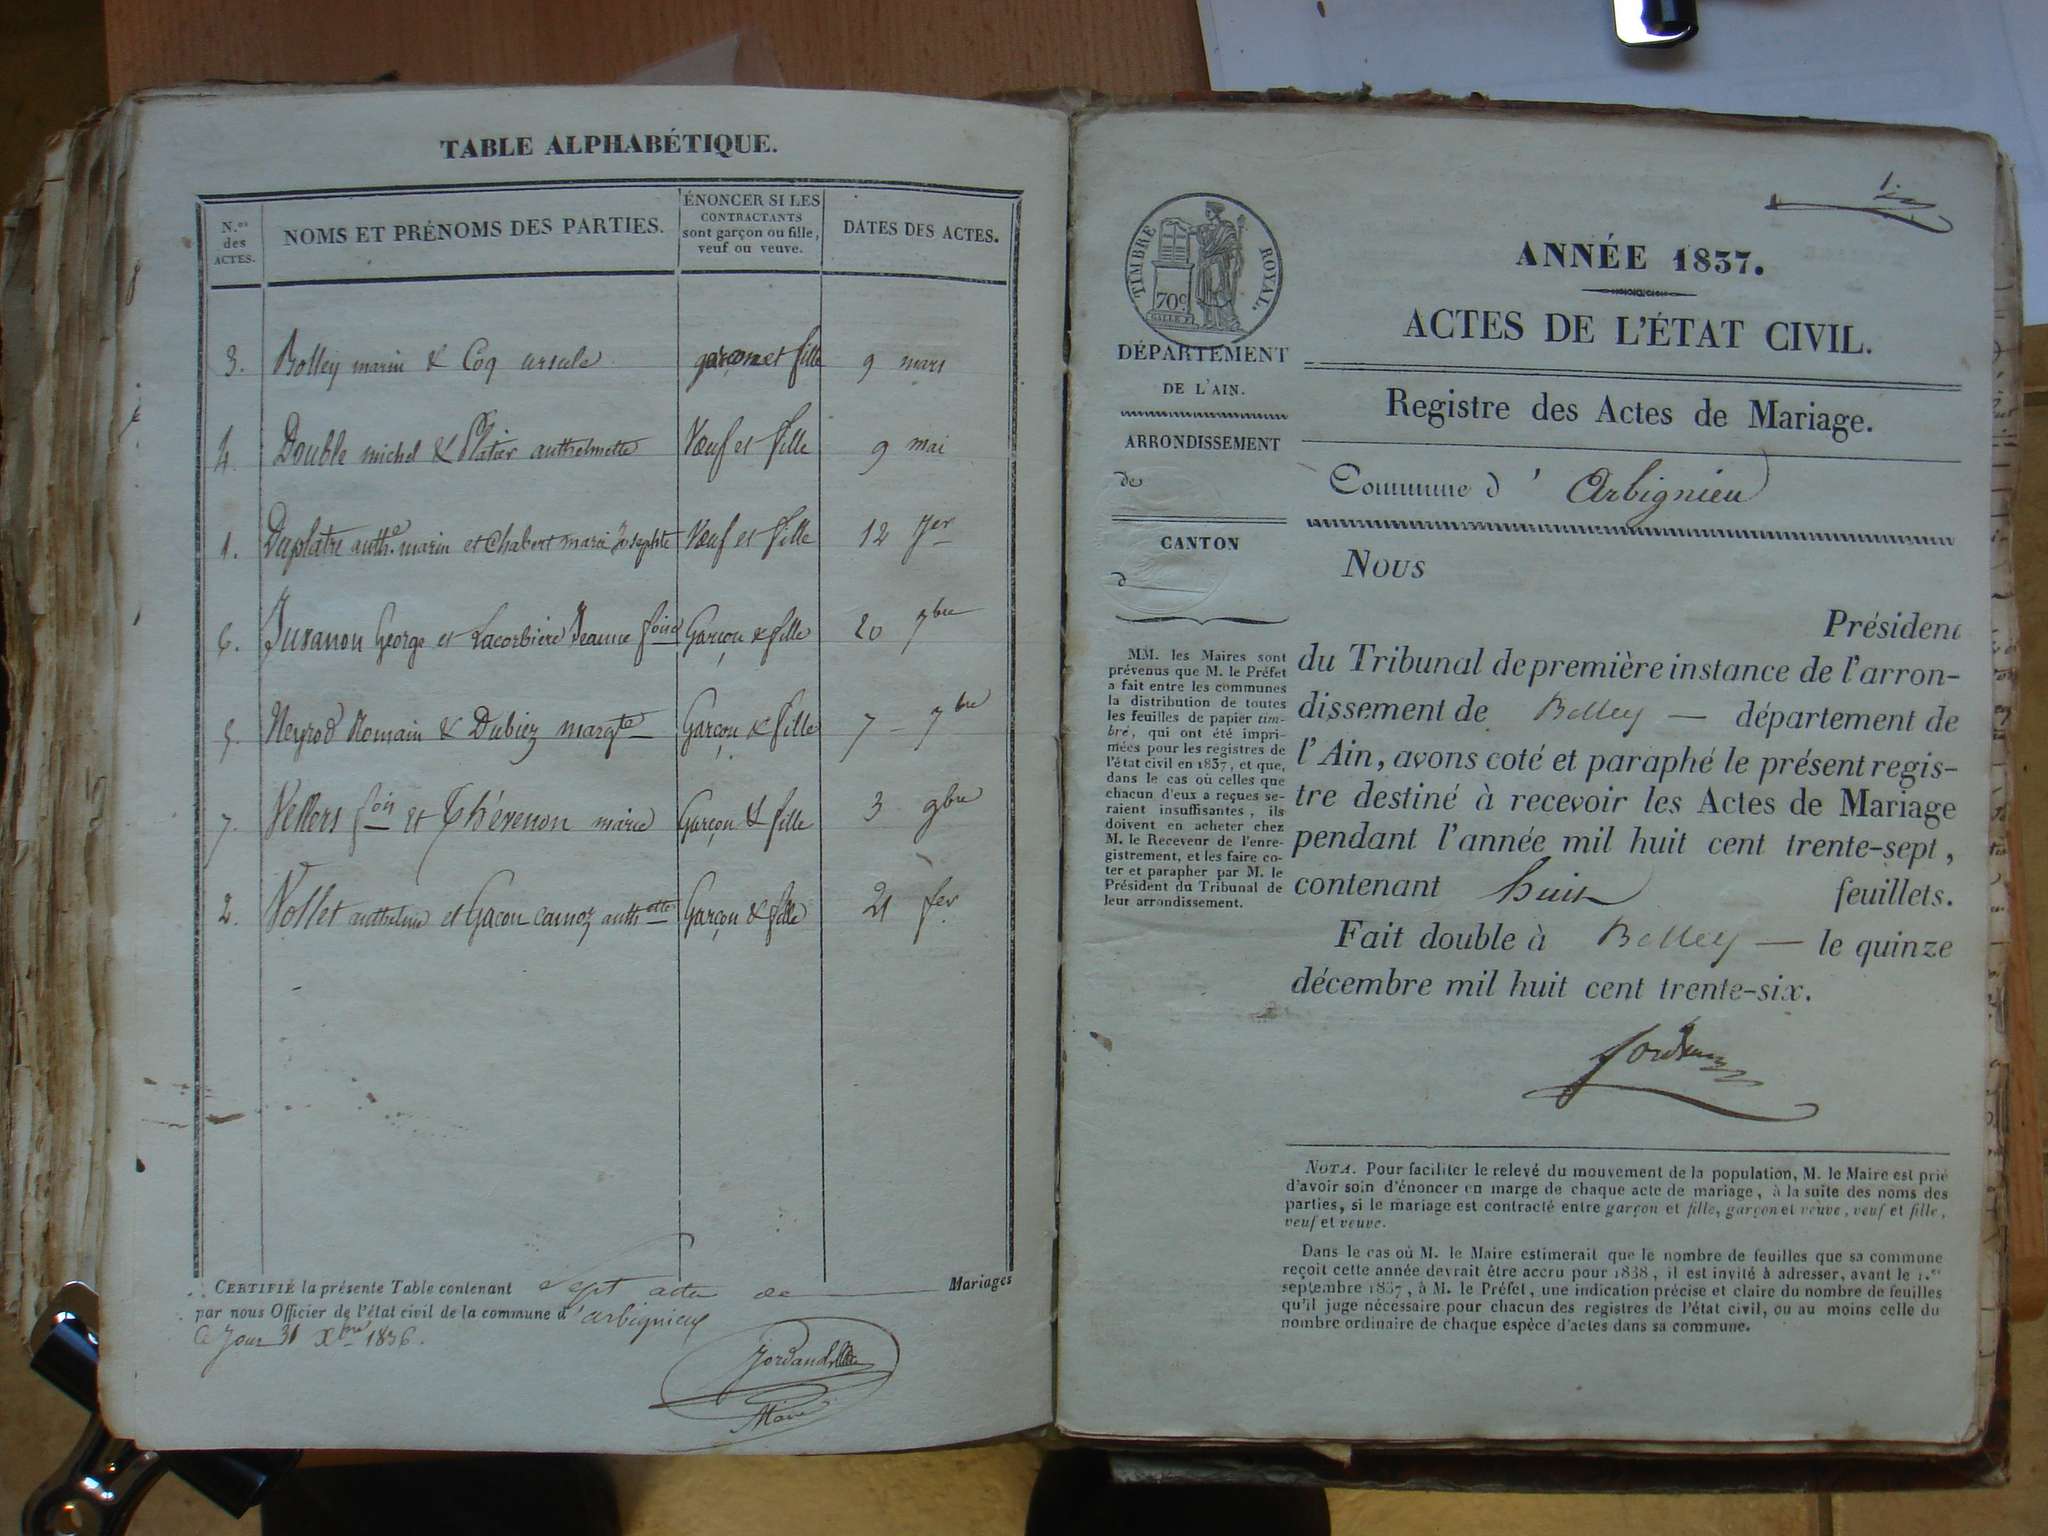 TABLE ALPHABÉTIQUE.
N.os des ACTES.
NOMS ET PRÉNOMS DES PARTIES.
ÉNONCER SI LES
CONTRACTANTS
sont garçon ou fille,
veuf ou veuve.
DATES DES ACTES.
3. Bolley marin & Coq ursule garçon et fille 9 mars
4. Double michel & Platier anthelmette Vœuf et fille 9 mai
1. Duplatre anth.e marin et Chabert marie Josephte Vœuf et fille 12 Jer
6. Juvanon George et Lacorbière Jeanne foise Garçon & fille 20 7bre
5. Neyrod Romain & Dubiez margte Garçon & fille 7 - 7bre
7. Vellers fois et Thévenon marie Garçon & fille 3 9bre
2. Vollet anthelme et Gacon carnoz anthette Garçon & fille 21 fer
CERTIFIÉ la présente Table contenant Sept actes de Mariages
par nous Officier de l'état civil de la commune d'arbignieu
Ce Jour 31 Xbre 1836.
Maire
1.
TIMBRE ROYAL.
70c
ANNÉE 1837.
ACTES DE L'ÉTAT CIVIL.
Registre des Actes de Mariage.
Commune d'Arbignieu
DÉPARTEMENT
DE L'AIN.
ARRONDISSEMENT
de
CANTON
d
MM. les Maires sont
prévenus que M. le Préfet
a fait entre les communes
la distribution de toutes
les feuilles de papier tim-
bré, qui ont été impri-
mées pour les registres de
l'état civil en 1837, et que,
dans le cas où celles que
chacun d'eux a reçues se-
raient insuffisantes, ils
doivent en acheter chez
M. le Receveur de l'enre-
gistrement, et les faire co-
ter et parapher par M. le
Président du Tribunal de
leur arrondissement.
Nous
Président
du Tribunal de première instance de l'arron-
dissement de Belley — département de
l'Ain, avons coté et paraphé le présent regis-
tre destiné à recevoir les Actes de Mariage
pendant l'année mil huit cent trente-sept,
contenant huit feuillets.
Fait double à Belley — le quinze
décembre mil huit cent trente-six.
NOTA. Pour faciliter le relevé du mouvement de la population, M. le Maire est prié
d'avoir soin d'énoncer en marge de chaque acte de mariage, à la suite des noms des
parties, si le mariage est contracté entre garçon et fille, garçon et veuve, veuf et fille,
veuf et veuve.
Dans le cas où M. le Maire estimerait que le nombre de feuilles que sa commune
reçoit cette année devrait être accru pour 1838, il est invité à adresser, avant le 1.er
septembre 1837, à M. le Préfet, une indication précise et claire du nombre de feuilles
qu'il juge nécessaire pour chacun des registres de l'état civil, ou au moins celle du
nombre ordinaire de chaque espèce d'actes dans sa commune.